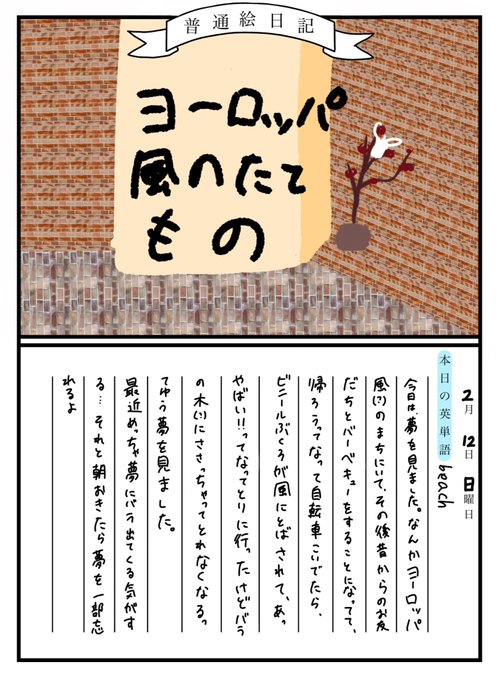 普通絵日記
ヨーロッパ
風のたて
もの
2月12日日曜日
本日の英単語 beach
今日は、夢を見ました。なんかヨーロッパ
風(?)のまちにいて、その後昔からのお友
だちとバーベキューをすることになってて、
帰ろうってなって自転車こいでたら、
ビニールぶくろが風にとばされて、あっ
やばい!!ってなってとりに行ったけどバラ
の木(?)にささっちゃってとれなくなるっ
てゆう夢を見ました。
最近めっちゃ夢にバラ出てくる気がす
る…それと朝おきたら夢を一部忘
れるよ